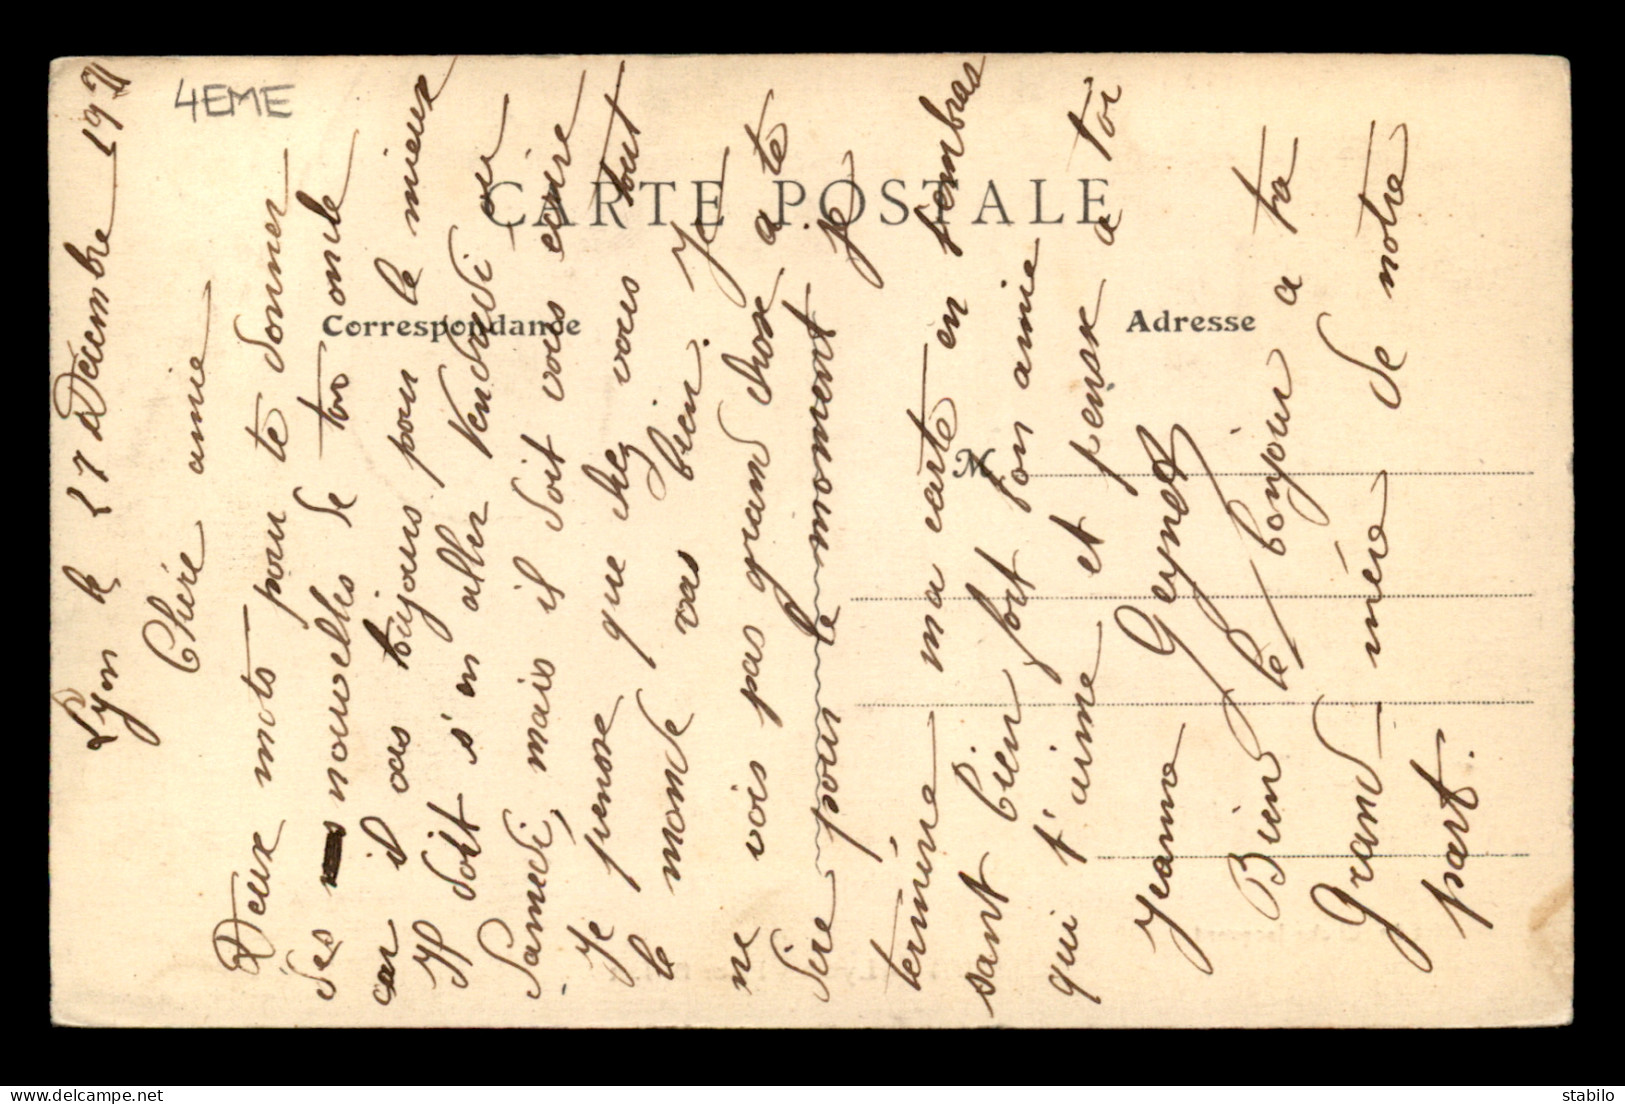 4EME
CARTE POSTALE
Correspondance
Adresse
M
Lyon le 27 Décembre 1921
Chére amie
Deux mots pour te donner
des nouvelles de ton oncle
car il vas toujours pour le mieux
Il doit s'en aller Vendredi ou
Samedi, mais il doit vous ecrire
Je pense que chez vous tout
le monde vas bien. Je
ne vois pas grand chose a te
dire pour Je
términe ma carte en t'embras
sant bien fort ton amie
qui t'aime et pense a toi
Jeanne
Bien le bonjour a ta
Grand-mère de notre
part.
delcampe.net
stabilo